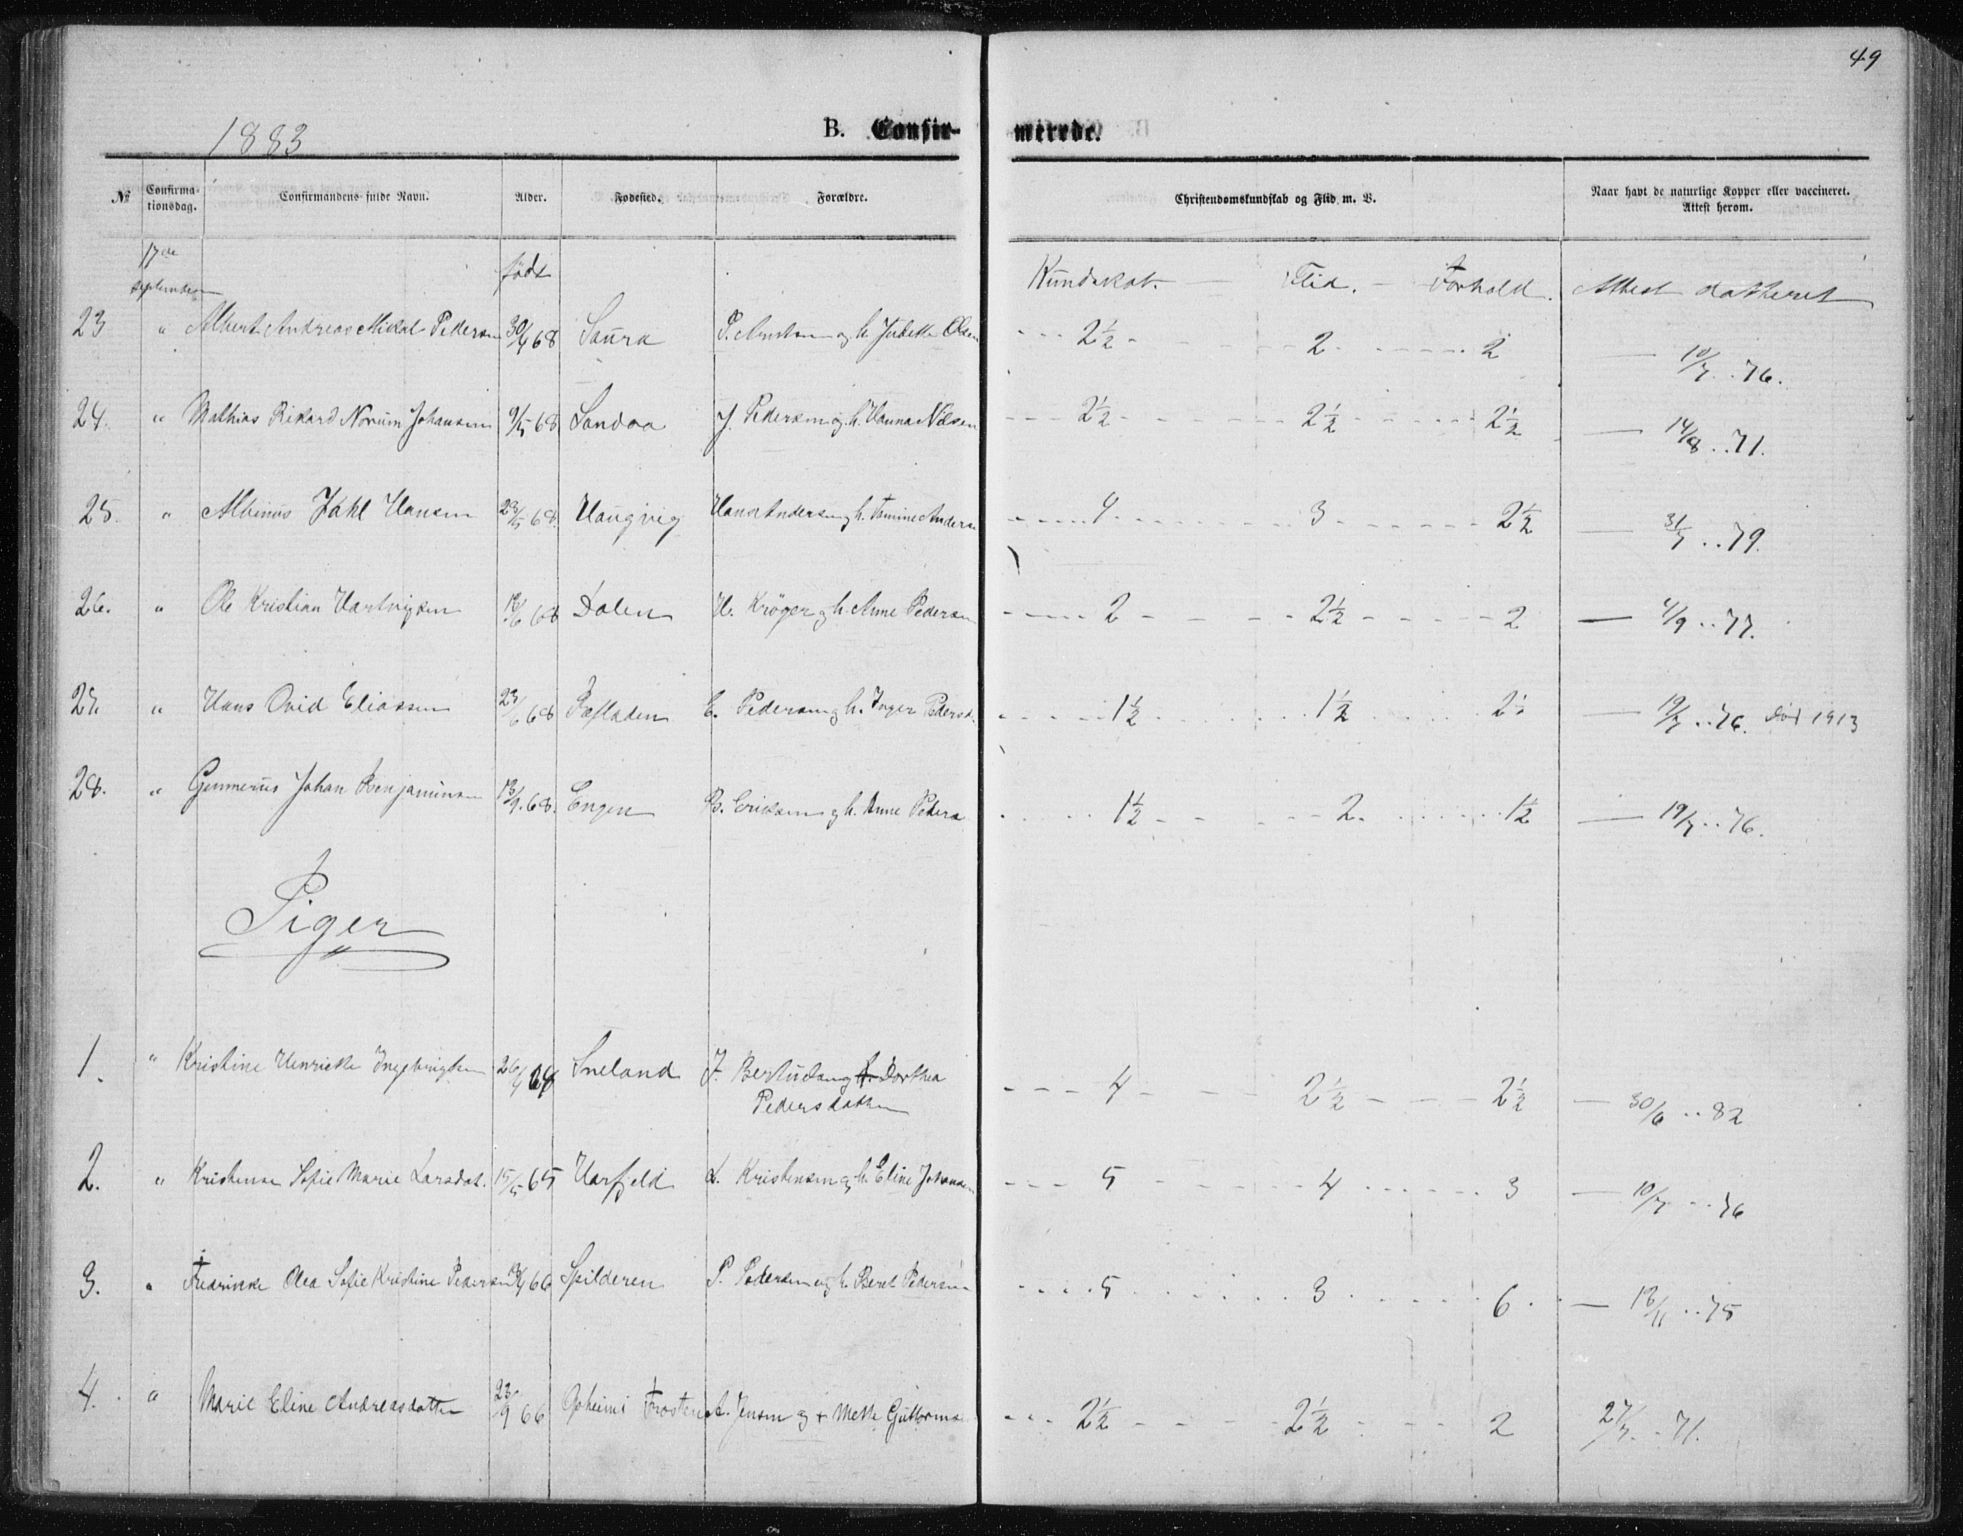 49
1883
B. Confir- merede.
№ Confirma-tionsdag. Confirmandens fulde Navn. Alder. Fødested. Forældre. Christendomskundskab og Flid m. V. Naar havt de naturlige Kopper eller vaccineret. Attest herom.
17de september født Kundskab. Flid. Forhold. Attest datteret
23 " Albert Andreas Mikal Pedersen 30/4 68 Saura P. og h. Olsen 2½ 2 2 — 10/7 .. 76.
24. " Mathias Rikard Norum Johansen 9/5 68 Sandaa J. Pedersen og h. Hanna Nilsen 2½ 2½ 2½ — 14/8 .. 71.
25. " Albinus Dahl Hansen 23/5 68. Haugvig Hans Andersen og h. Andersen 4 3 2½ — 31/7 .. 79.
26. " Ole Kristian Hartvigsen 18/6 68 Dalen H. Krøger og h. Anne Pedersen 2 2½ 2 — 4/9 .. 77.
27. " Hans Ovid Eliassen 23/6 68 E. Pedersen og h. Inger Pedersd. 1½ 1½ 2 — 19/7 .. 76. død 1913
28. " Gunnerius Johan Benjaminsen 13/9. 68. Engen B. Eriksen og h. Anne Peders 1½ 2. 1½ — 19/7 .. 76.
Piger
1. " Kristine Henrikke Ingebrigtsen 26/4 64 Sneland J. og Dorthea 4 2½ 2½ — 30/6 .. 82
Pedersdatter
2. " Sofie Marie Larsdat. 15/5 65 Harfjeld L. Kristensen og h. Eline Johansen 5 4 3 — 10/7 .. 76
3. " Fredrikke Olea Sofie Kristine Pedersen 66 Spilderen P. Pedersen og h. Beret Pedersen 5 3 6. — 18/11 .. 75
4. " Marie Eline Andreasdatter 23/9 66 Opheimi Frosten A. Jensen og + Mette Guttorms 2½ 2½ 2 27/7 .. 71.